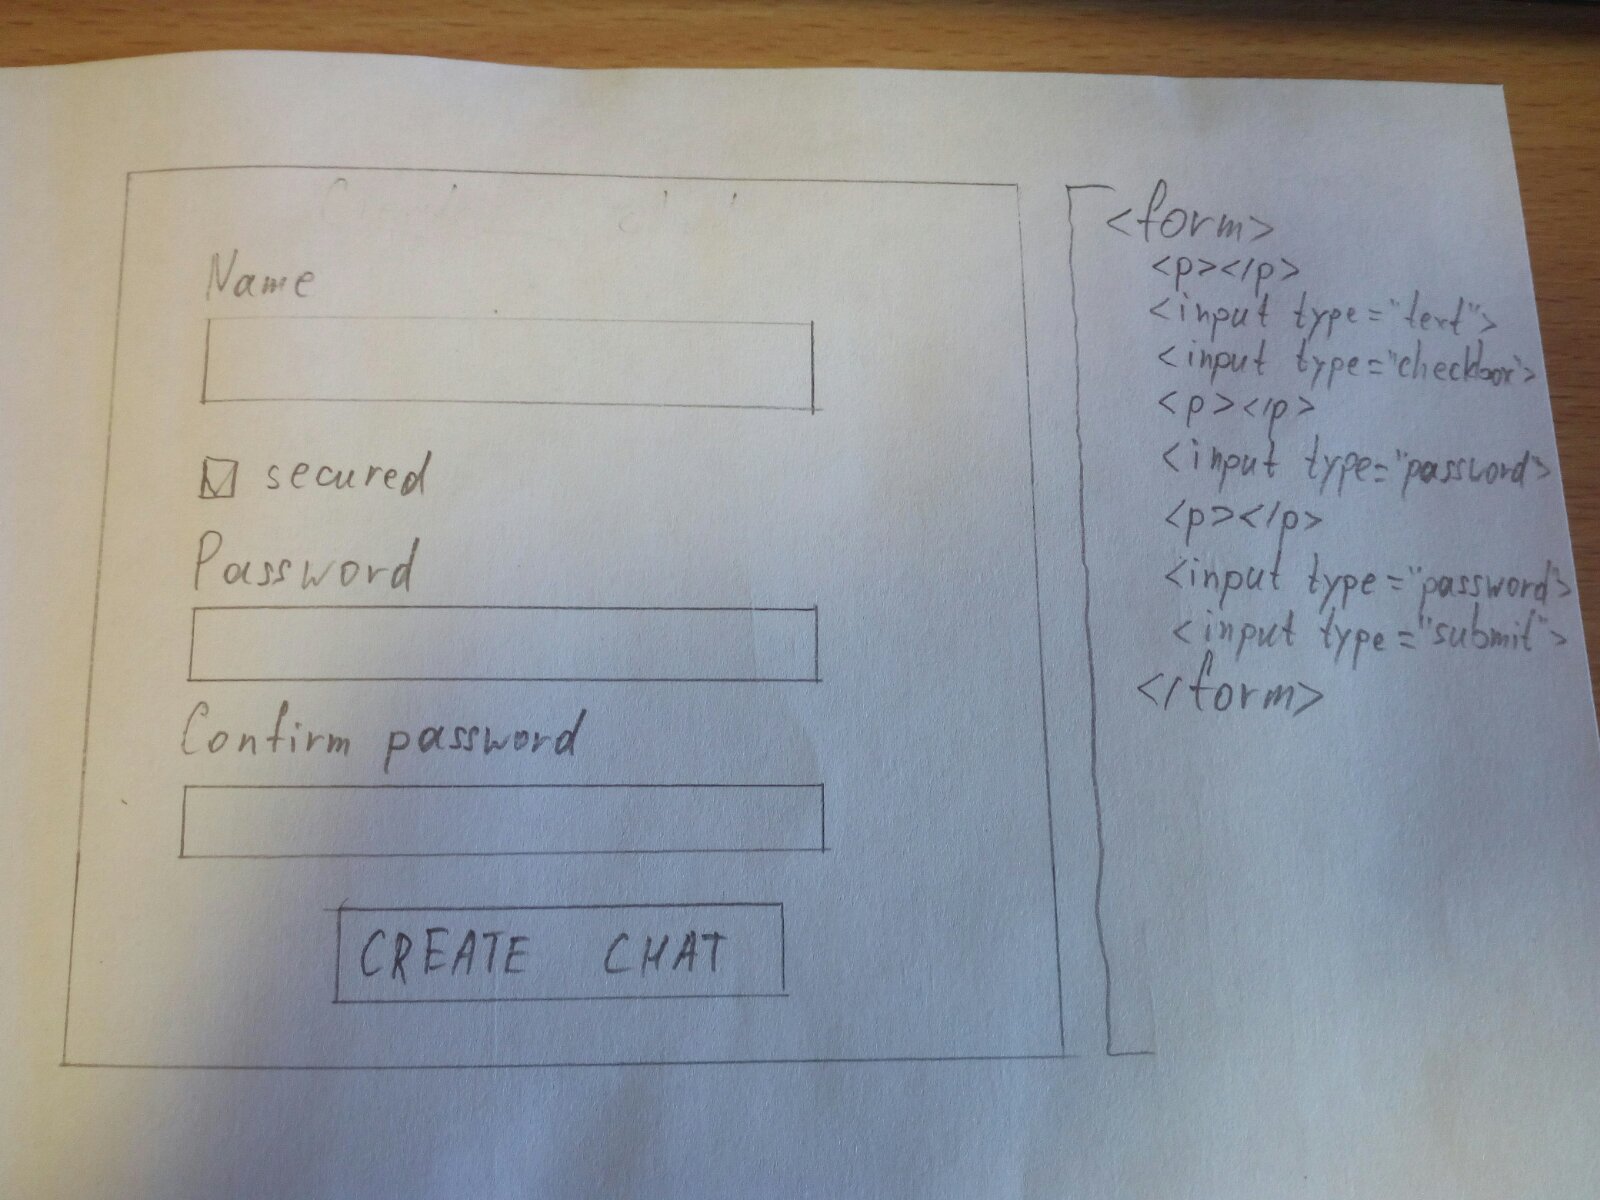 Name
secured
Password
Confirm password
CREATE CHAT
<form>
<p></p>
<input type="text">
<input type="checkbox">
<p></p>
<input type="password>
<p></p>
<input type="password">
<input type="submit">
</form>